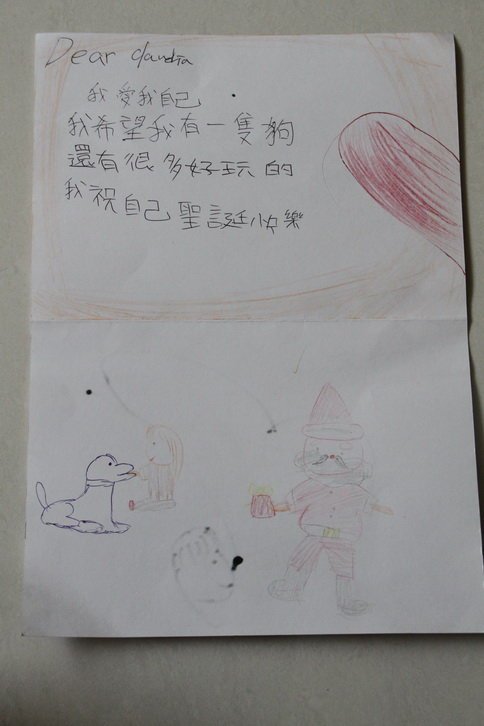 Dear claudia
我愛我自己
我希望我有一隻狗
還有很多好玩的
我祝自己聖誕快樂